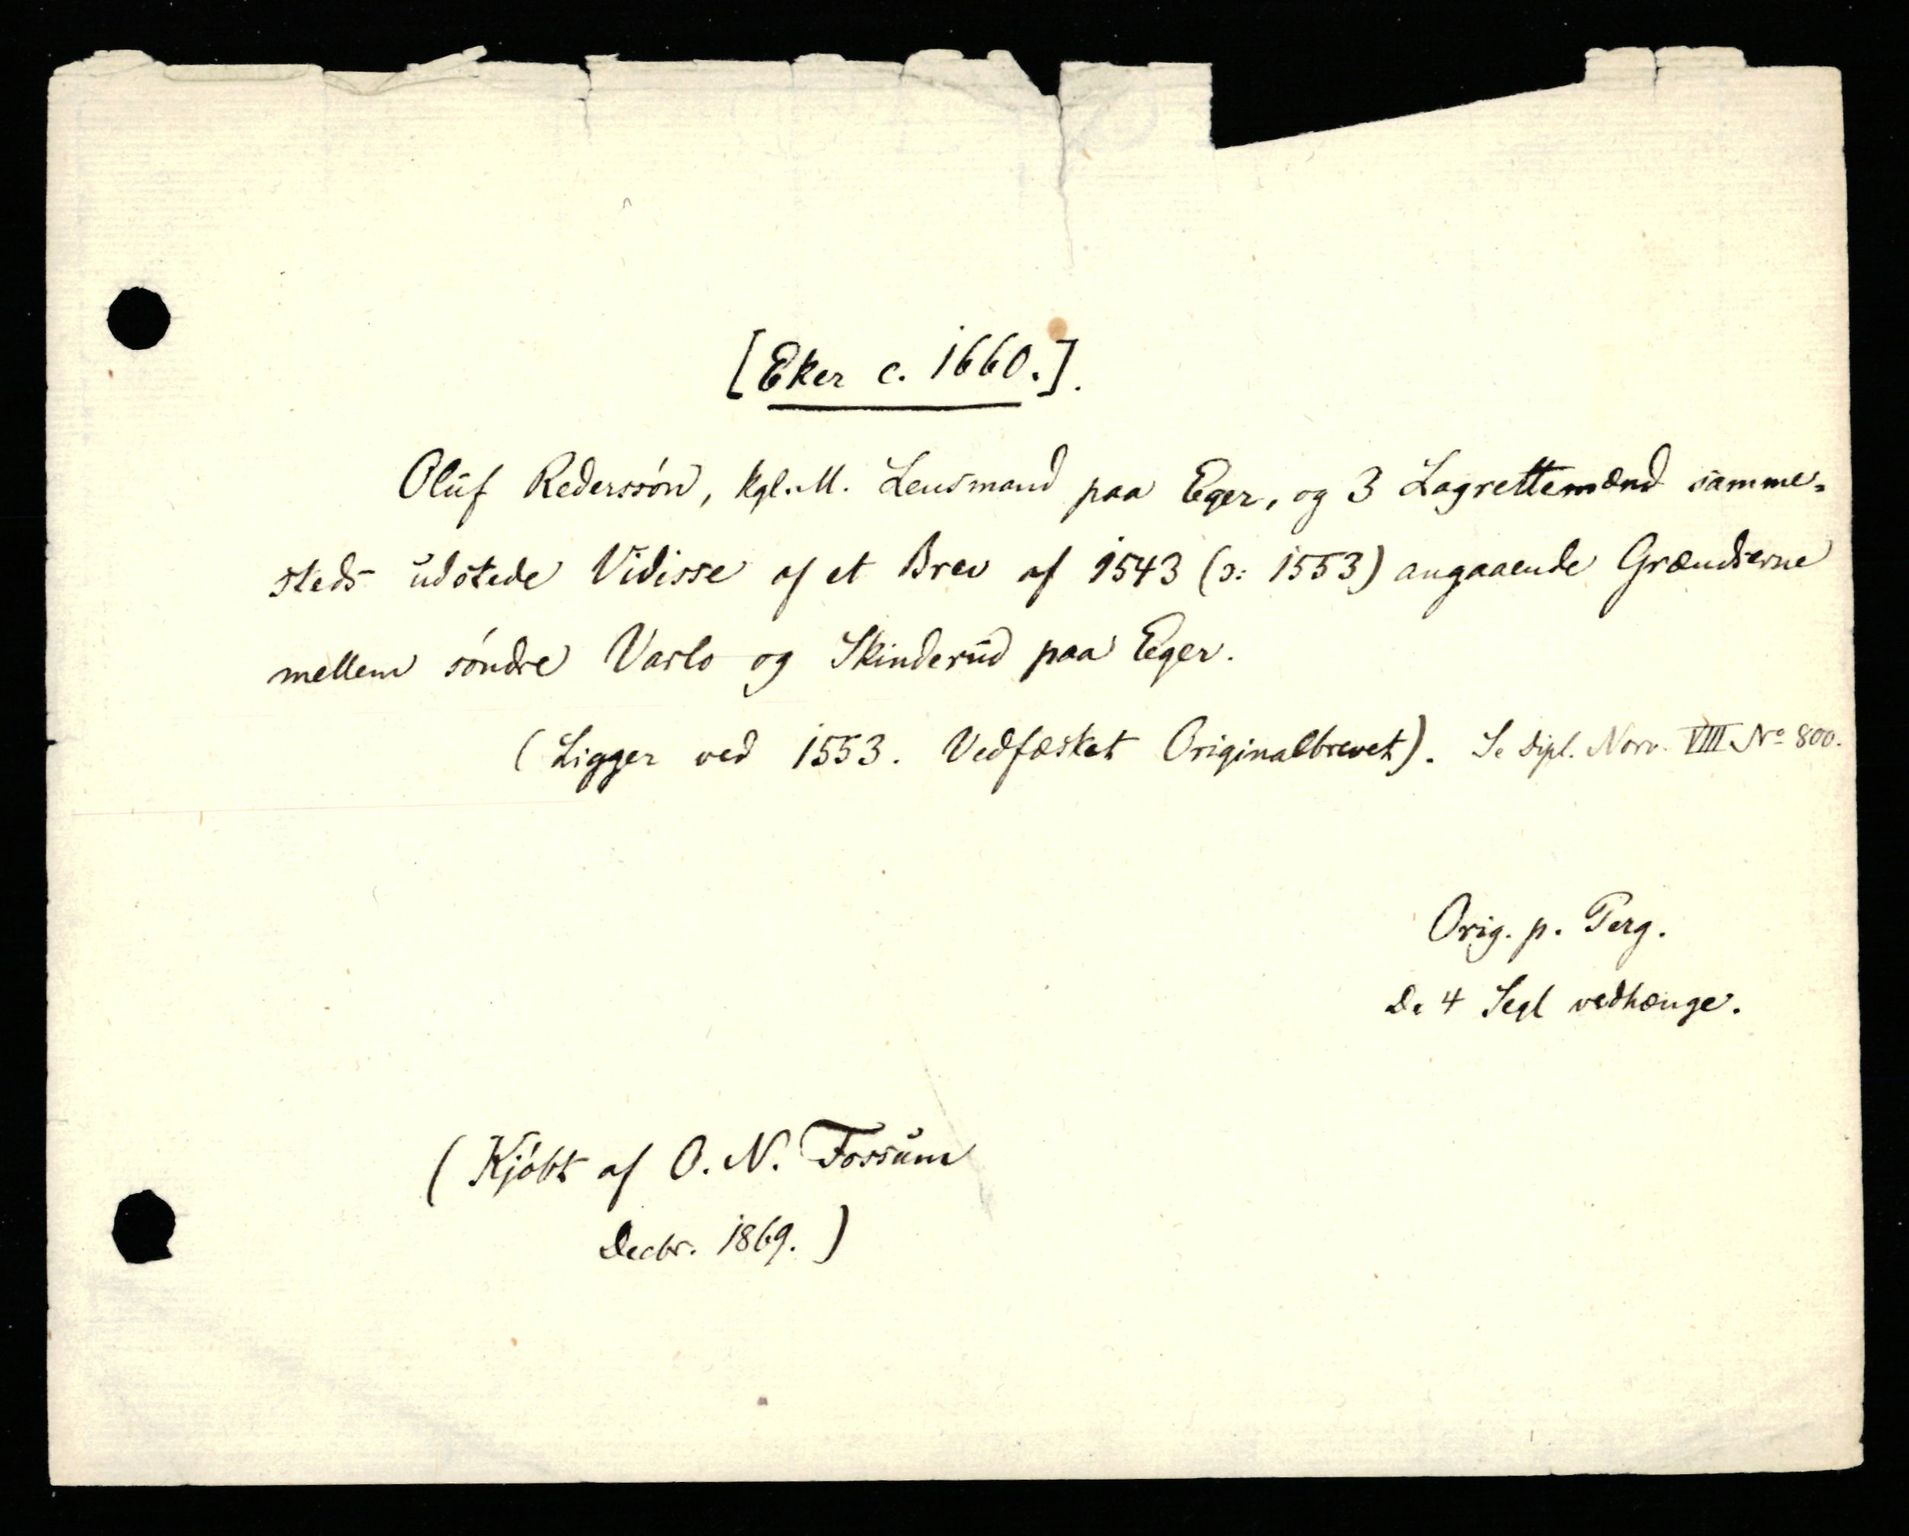 [Eker c. 1660.].
Oluf Rederssøn, kgl. M. Lensmand paa Eger, og 3 Lagrettemænd samme-
steds udstede Vidisse af et Brev af 1543 (ɔ: 1553) angaaende Grændserne
mellem søndre Varlo og Skinderud paa Eger.
(Ligger ved 1553. Vedfæsket Originalbrevet). Se Dipl. Norv. VIII No 800.
Orig. p. Perg.
De 4 Segl vedhænge.
(Kjøbt af O. N. Fossum
Decbr. 1869.)